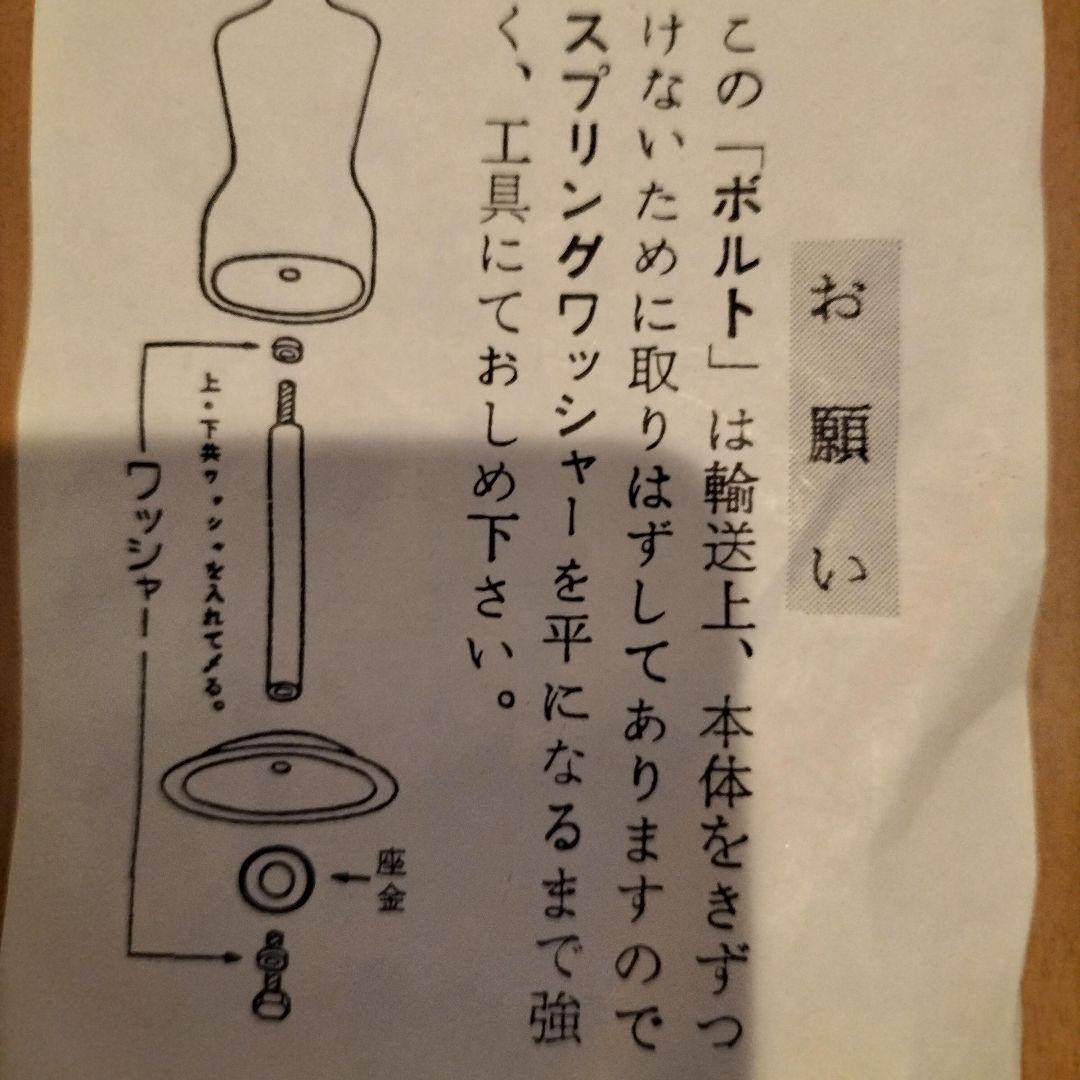 お願い
この「ボルト」は輸送上、本体をきずつ
けないために取りはずしてありますので
スプリングワッシャーを平になるまで強
く、工具にておしめ下さい。
座金
上・下共ワッシャを入れて〆る。
ワッシャー